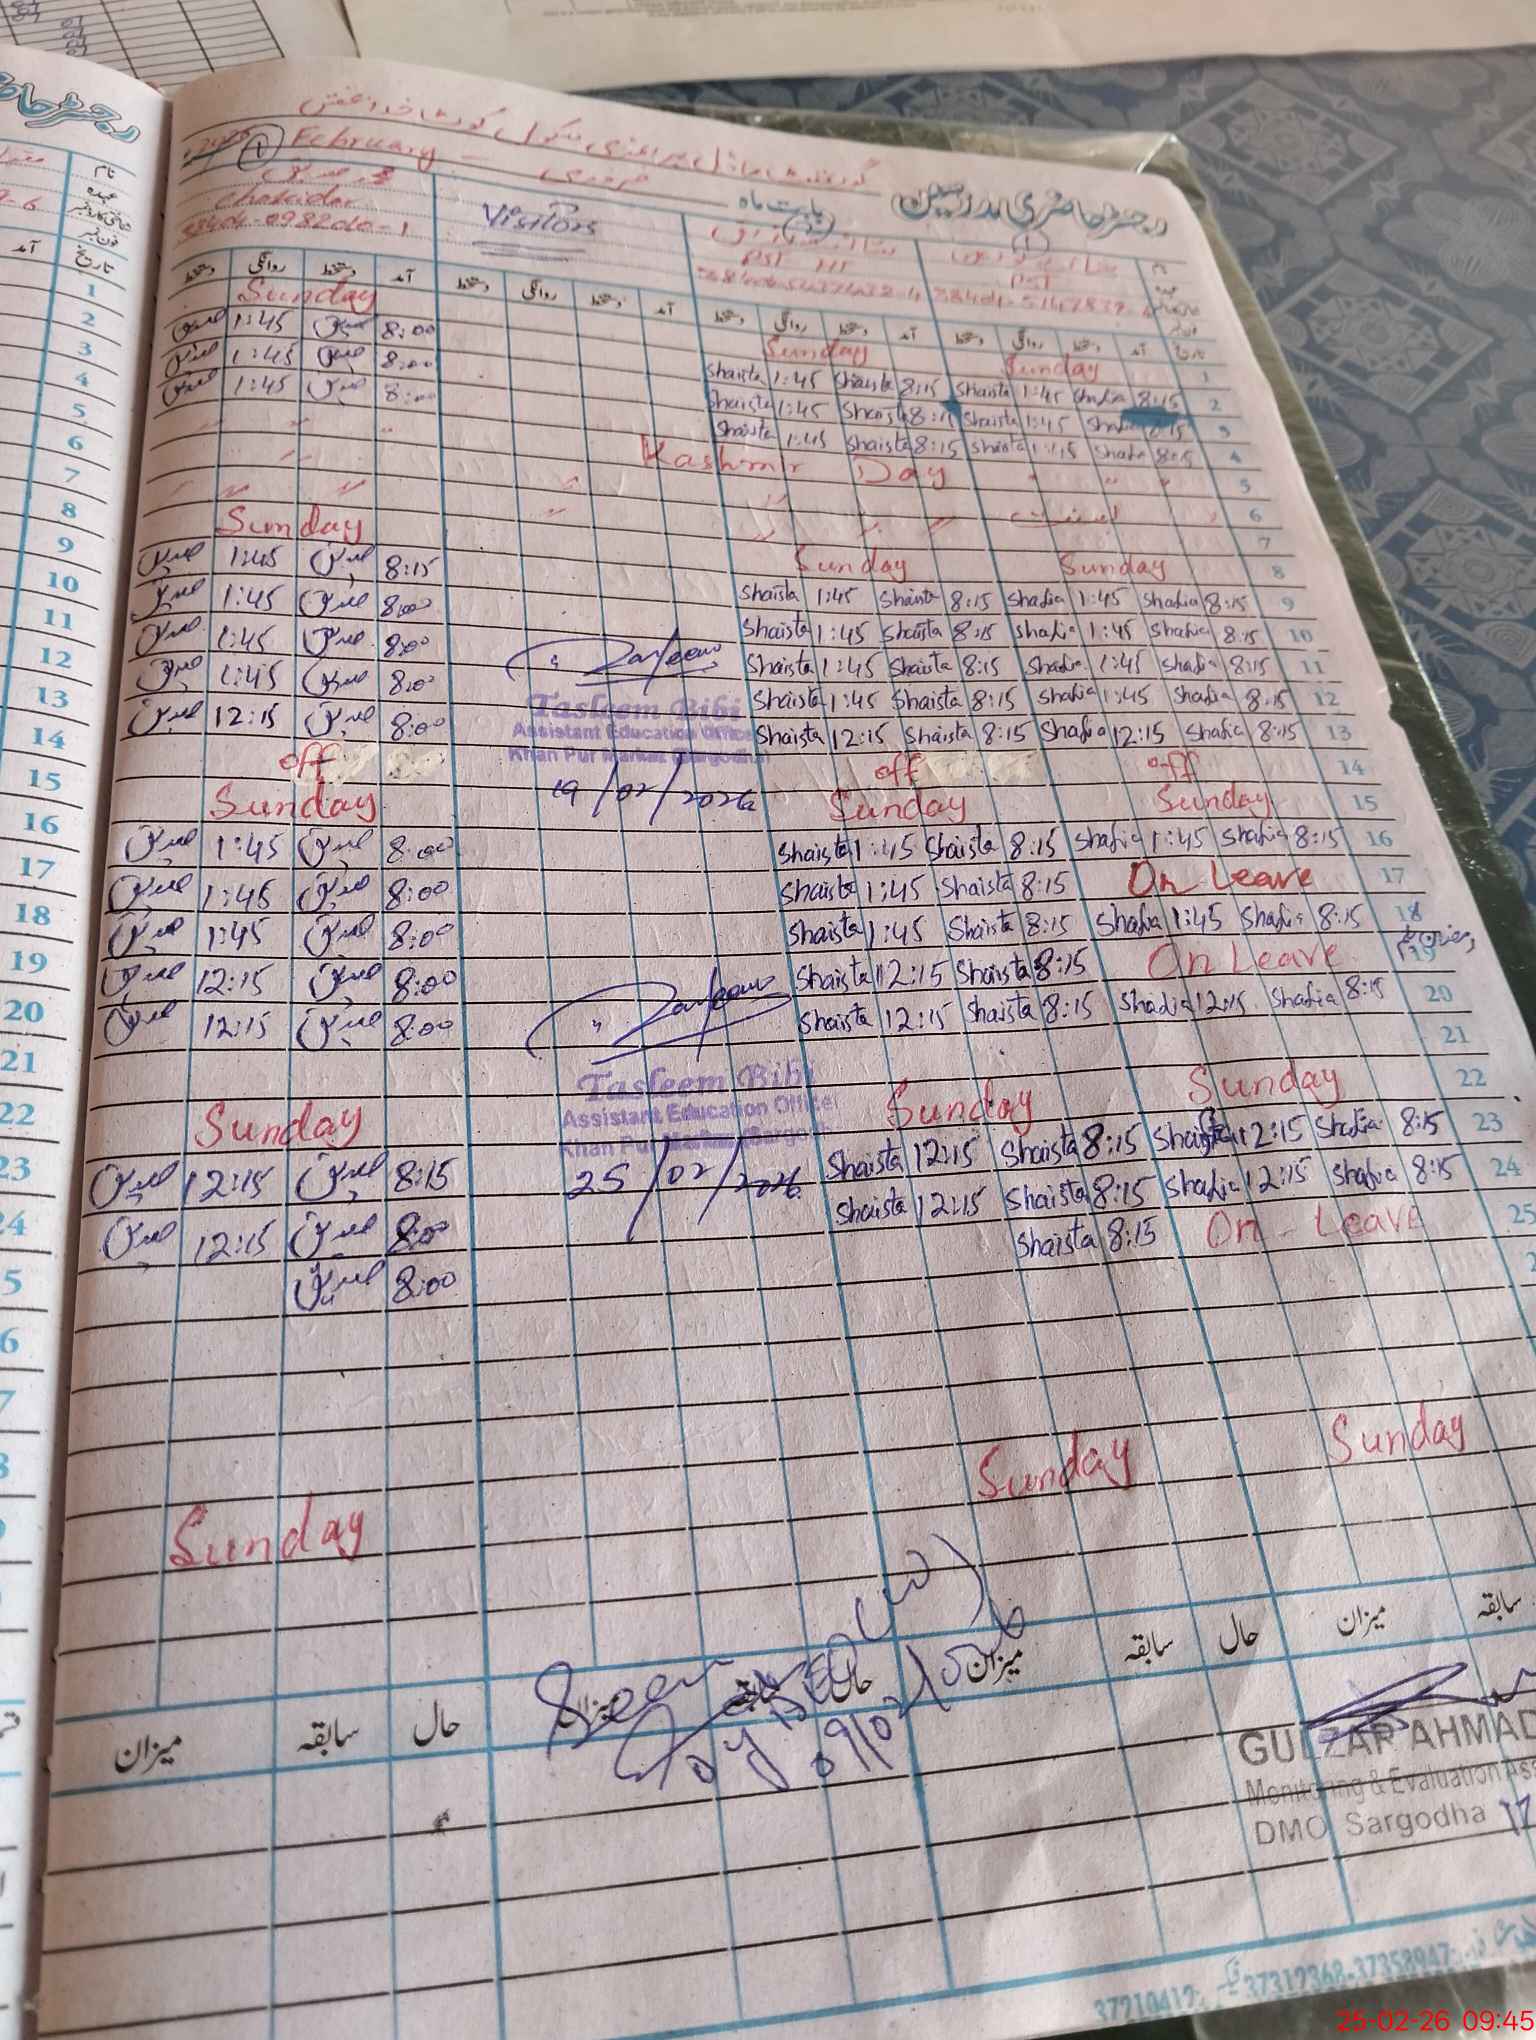 رجسٹر حاضری مدرسین
بابت ماہ فروری
① February
Visitors
Chokidar
PST
Sunday Sunday Sunday
صدیق 1:45 صدیق 8:00 Shaista 1:45 Shaista 8:15 Shaista 1:45 Shafia 8:15 2
صدیق 1:45 صدیق 8:00 Shaista 1:45 Shaista 8:15 Shaista 1:45 Shafia 8:15 3
صدیق 1:45 صدیق 8:00 Shaista 1:45 Shaista 8:15 Shaista 1:45 Shafia 8:15 4
Kashmir Day 5
6
7
Sunday Sunday Sunday 8
صدیق 1:45 صدیق 8:15 Shaista 1:45 Shaista 8:15 Shafia 1:45 Shafia 8:15 9
صدیق 1:45 صدیق 8:00 Shaista 1:45 Shaista 8:15 Shafia 1:45 Shafia 8:15 10
صدیق 1:45 صدیق 8:00 Shaista 1:45 Shaista 8:15 Shafia 1:45 Shafia 8:15 11
صدیق 1:45 صدیق 8:00 Shaista 1:45 Shaista 8:15 Shafia 1:45 Shafia 8:15 12
صدیق 12:15 صدیق 8:00 Shaista 12:15 Shaista 8:15 Shafia 12:15 Shafia 8:15 13
Tasleem Bibi
Assistant Education Officer
Khan Pur Markaz (Sargodha)
19/02/2026
off off off 14
Sunday Sunday Sunday 15
صدیق 1:45 صدیق 8:00 Shaista 1:45 Shaista 8:15 Shafia 1:45 Shafia 8:15 16
صدیق 1:45 صدیق 8:00 Shaista 1:45 Shaista 8:15 On Leave 17
صدیق 1:45 صدیق 8:00 Shaista 1:45 Shaista 8:15 Shafia 1:45 Shafia 8:15 18
صدیق 12:15 صدیق 8:00 Shaista 12:15 Shaista 8:15 On Leave 19
صدیق 12:15 صدیق 8:00 Shaista 12:15 Shaista 8:15 Shafia 12:15 Shafia 8:15 20
21
Tasleem Bibi
Assistant Education Officer
Khan Pur Markaz (Sargodha)
25/02/2026
Sunday Sunday Sunday 22
صدیق 12:15 صدیق 8:15 Shaista 12:15 Shaista 8:15 12:15 Shafia 8:15 23
صدیق 12:15 صدیق 8:00 Shaista 12:15 Shaista 8:15 Shafia 12:15 Shafia 8:15 24
صدیق 8:00 Shaista 8:15 On - Leave 25
Sunday Sunday Sunday
میزان سابقہ حال میزان سابقہ حال میزان سابقہ حال میزان سابقہ
GULZAR AHMAD
Monitoring & Evaluation Ass
DMO Sargodha
37210412 37312368-37358947
25-02-26 09:45